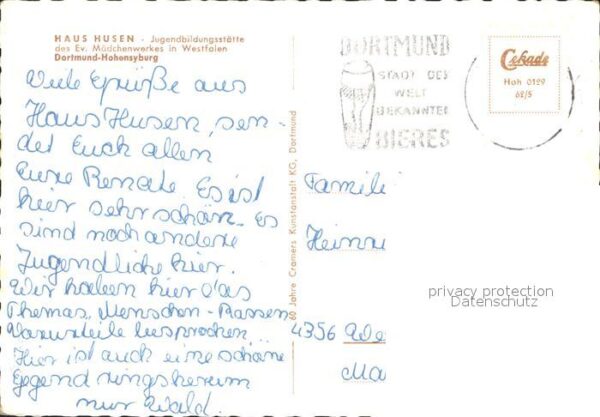 HAUS HUSEN - Jugendbildungsstätte
des Ev. Mädchenwerkes in Westfalen
Dortmund-Hohensyburg
Viele Grüße aus
Haus Husen, sen-
det Euch allen
Eure Renate. Es ist
hier sehr schön. Es
sind noch andere
Jugendliche hier.
Wir haben hier das
Thema, Menschen - Rassen
Vorurteile besprochen...
Hier ist auch eine schöne
Gegend ringsherum
nur Wald.
60 Jahre Cramers Kunstanstalt KG, Dortmund
DORTMUND
STADT DES
WELT
BEKANNTEN
BIERES
Cekade
Hoh 0129
68/5
Famili
Heinri
4356
Ma
privacy protection
Datenschutz